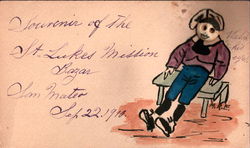 Souvenir of The
St. Lukes Mission
Bazar
San Mateo
Sep. 22. 1910